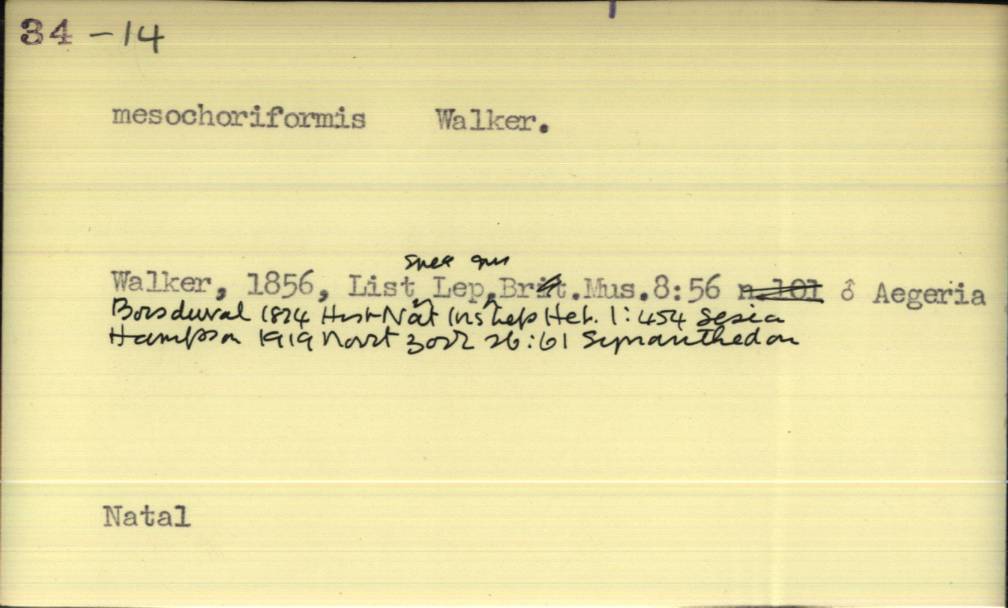 34 - 14
mesochoriformis Walker.
spec ins
Walker, 1856, List Lep. Brit. Mus. 8:56 n.101 ♂ Aegeria
Boisduval 1874 Hist Nat Ins Lep Het. 1:454 Sesia
Hampson 1919 Novit zool 26:61 Synanthedon
Natal